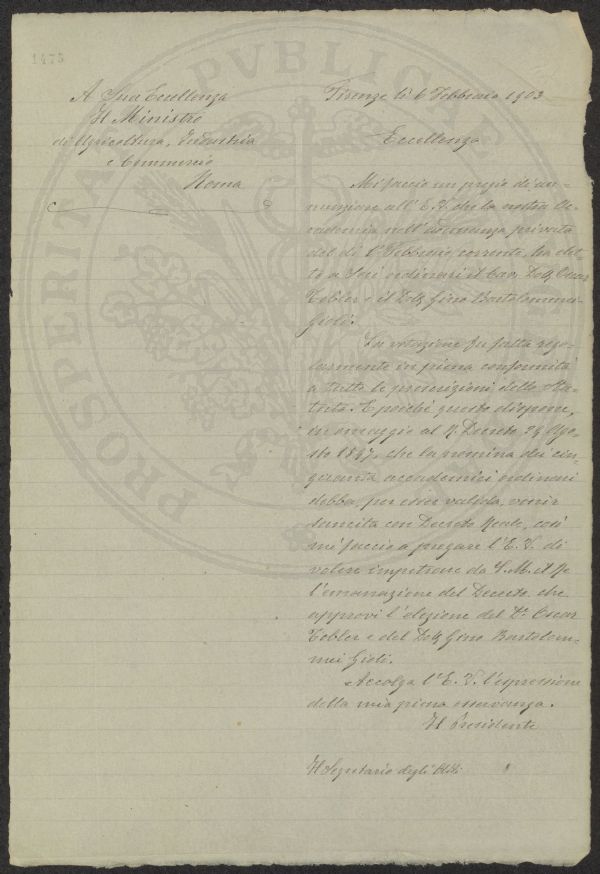 1475
A Sua Eccellenza
Il Ministro
di Agricoltura, Industria
e Commercio
Roma
Firenze lì 6 Febbraio 1903
Eccellenza
Mi faccio un pregio di an-
nunziare all'E. V. che la nostra Ac-
cademia nell'adunanza privata
del dì 1° Febbraio corrente, ha elet-
to a Soci ordinari il Cav. Dott. Oscar
Tobler e il Dott. Gino Bartolommei-
Gioli.
La votazione fu fatta rego-
larmente in piena conformità
a tutte le prescrizioni dello Sta-
tuto. E poichè questo dispone,
in omaggio al R. Decreto 29 Ago-
sto 1897, che la nomina dei cin-
quanta accademici ordinari
debba, per esser valida, venir
sancita con Decreto Reale, così
mi faccio a pregare l'E. V. di
volere impetrare da S. M. il Re
l'emanazione del Decreto che
approvi l'elezione del Dr. Oscar
Tobler e del Dott. Gino Bartolom-
mei Gioli.
Accolga l'E. V. l'espressione
della mia piena osservanza.
Il Presidente
Il Segretario degli Atti
PROSPERITA
PVBLICAE